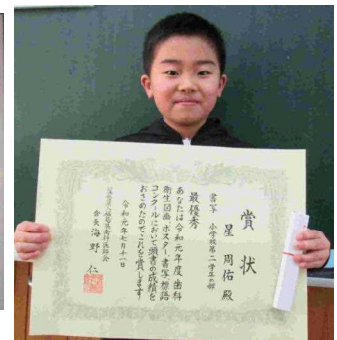 賞状
書写 小学校第二学年の部
最優秀
星 周佑 殿
あなたは令和元年度歯科
衛生図画、ポスター、書写、標語
コンクールにおいて頭書の成績を
おさめたのでこれを賞します
令和元年七月十一日
会長 海野 仁